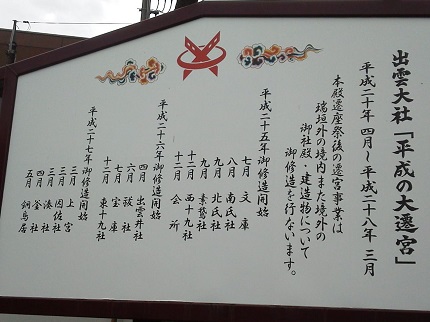 出雲大社「平成の大遷宮」
平成二十年 四月~平成二十八年 三月
本殿遷座祭後の遷宮事業は
瑞垣外の境内また境外の
御社殿・建造物について
御修造を行ないます。
平成二十五年御修造開始
七月 文庫
八月 南氏社
九月 北氏社
九月 素鵞社
十二月 西十九社
十二月 会所
平成二十六年御修造開始
四月 出雲井社
六月 祓社
七月 宝庫
十一月 東十九社
平成二十七年御修造開始
三月 上宮
三月 因佐社
三月 湊社
四月 釜社
五月 銅鳥居